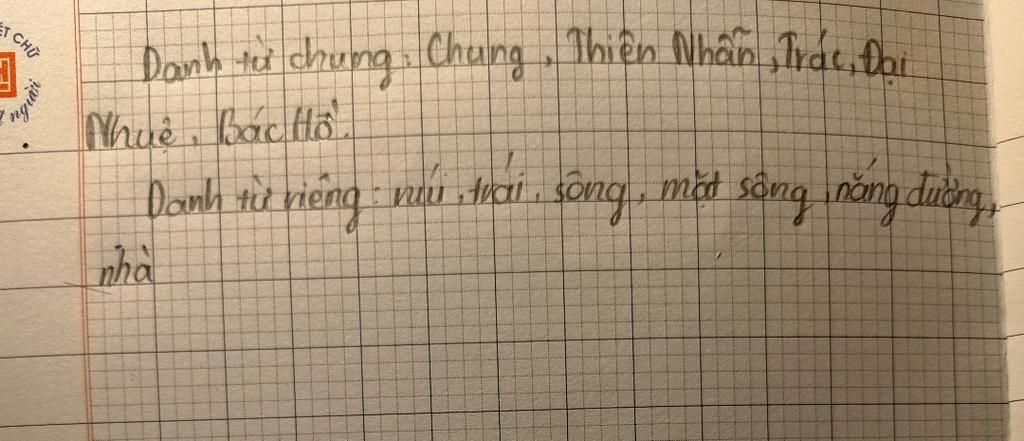 ẾT CHỮ
người
Danh từ chung: Chung, Thiên Nhẫn, Trác, Đại
Nhuệ, Bác Hồ.
Danh từ riêng: núi, trái, sông, mặt sông, nắng đường,
nhà